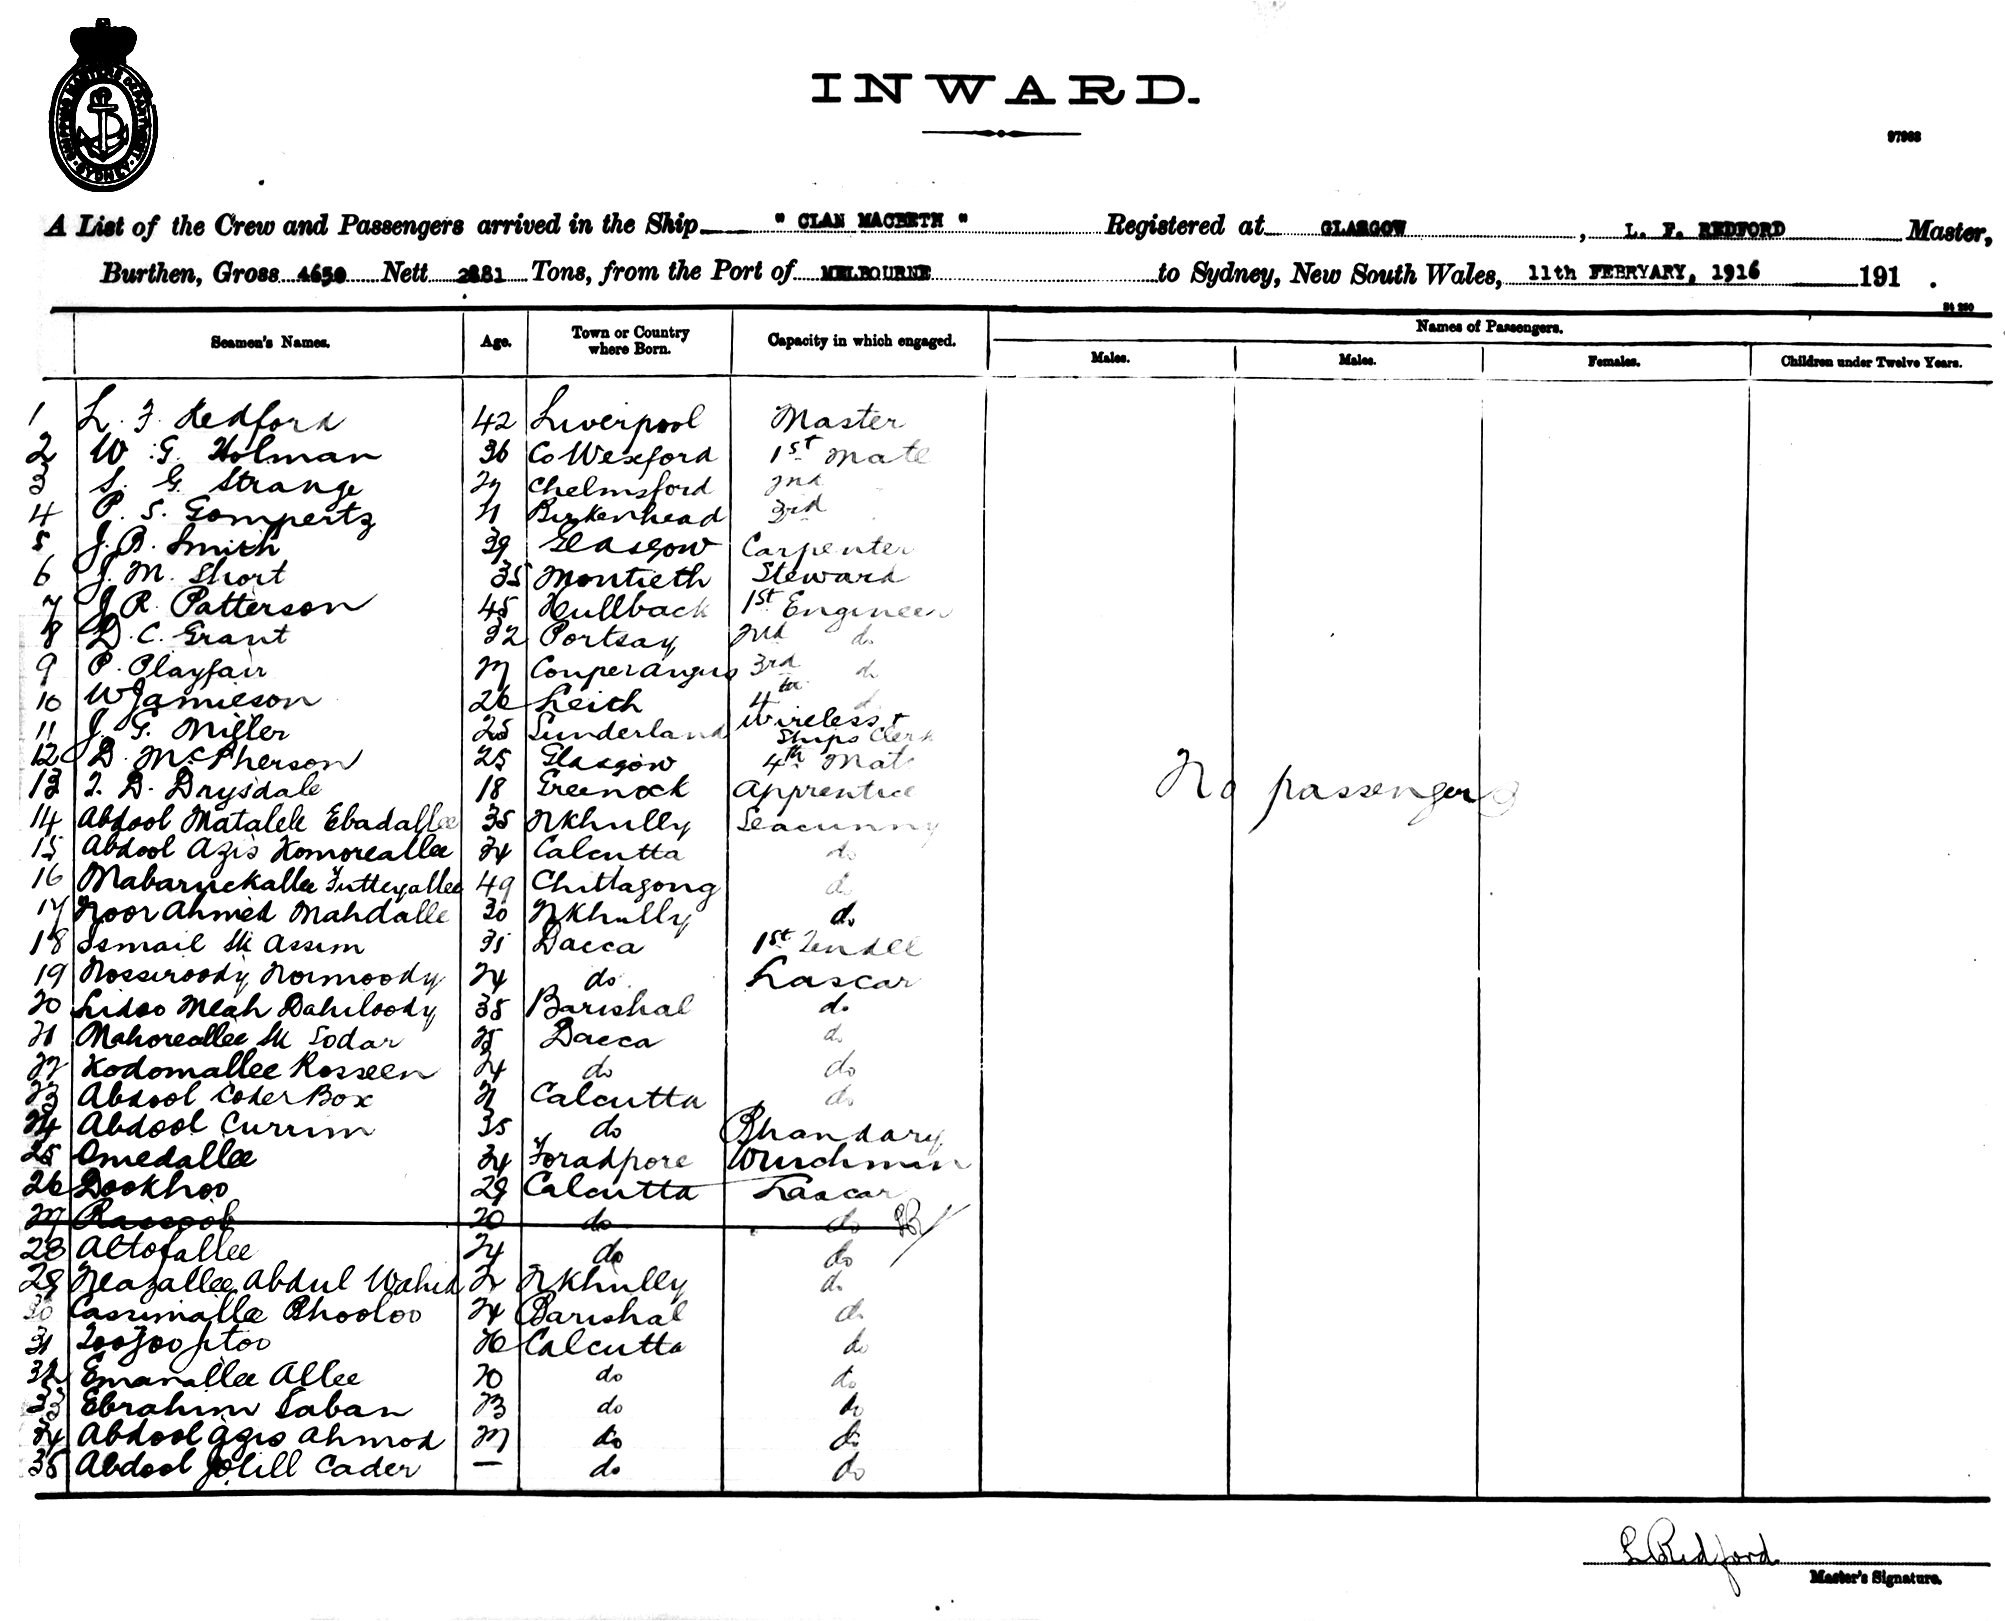 SHIPPING MASTERS DEPARTMENT SYDNEY
INWARD.
97968
A List of the Crew and Passengers arrived in the Ship " CLAN MACBETH " Registered at GLASGOW, L. F. REDFORD Master,
Burthen, Gross 4650 Nett 2881 Tons, from the Port of MELBOURNE to Sydney, New South Wales, 11th FEBRYARY, 1916 191 .
Seamen's Names. Age. Town or Country where Born. Capacity in which engaged. Names of Passengers.
Males. Males. Females. Children under Twelve Years.
1 L. F. Redford 42 Liverpool Master
2 W. G. Holman 36 Co Wexford 1st Mate
3 S. G. Strange 27 Chelmsford 2nd
4 P. S. Gompertz 21 Birkenhead 3rd
5 J. B. Smith 39 Glasgow Carpenter
6 J. M. Short 35 Montieth Steward
7 J. R. Patterson 45 Hullback 1st Engineer
8 D. C. Grant 32 Portsay 2nd do
9 P. Playfair 27 Couper Angus 3rd do
10 W Jamieson 26 Leith 4th do
11 J. G. Miller 25 Sunderland Wireless + Ships Clerk
12 D. McPherson 25 Glasgow 4th Mate
13 T. D. Drysdale 18 Greenock Apprentice
No passengers
14 Abdool Matalek Ebadallee 35 NKhully Seacunny
15 Abdool Azis Komoreallee 24 Calcutta do
16 Mabaruckallee Futteyallee 49 Chittagong do
17 Noor Ahmed Mahdalle 30 NKhully do
18 Ismail Sk Assim 35 Dacca 1st Tendel
19 Nossiroody Normoody 24 do Lascar
20 Lidoo Meah Dahiloody 35 Barishal do
21 Mahoreallee Sk Sodar 25 Dacca do
22 Kodomallee Rosseen 24 do do
23 Abdool Coder Box 21 Calcutta do
24 Abdool Currim 35 do Bhandary
25 Omedallee 24 Foradpore Winchman
26 Dookhoo 29 Calcutta Lascar
27 Rassool 20 do do
28 Altofallee 24 do do
29 Neazallee Abdul Wahid NKhully do
30 Cassimalle Bhooloo 24 Barishal do
31 26 Calcutta do
32 Emanallee Allee 20 do do
33 Ebrahim Saban 23 do do
34 Abdool Azis Ahmod 27 do do
35 Abdool Jolill Cader — do do
L Redford
Master's Signature.